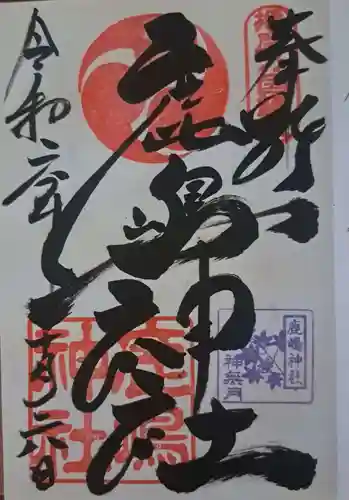 奉拝
鹿嶋神社
令和二年
十月二六日
鹿嶋神社
鹿嶋神社
神無月